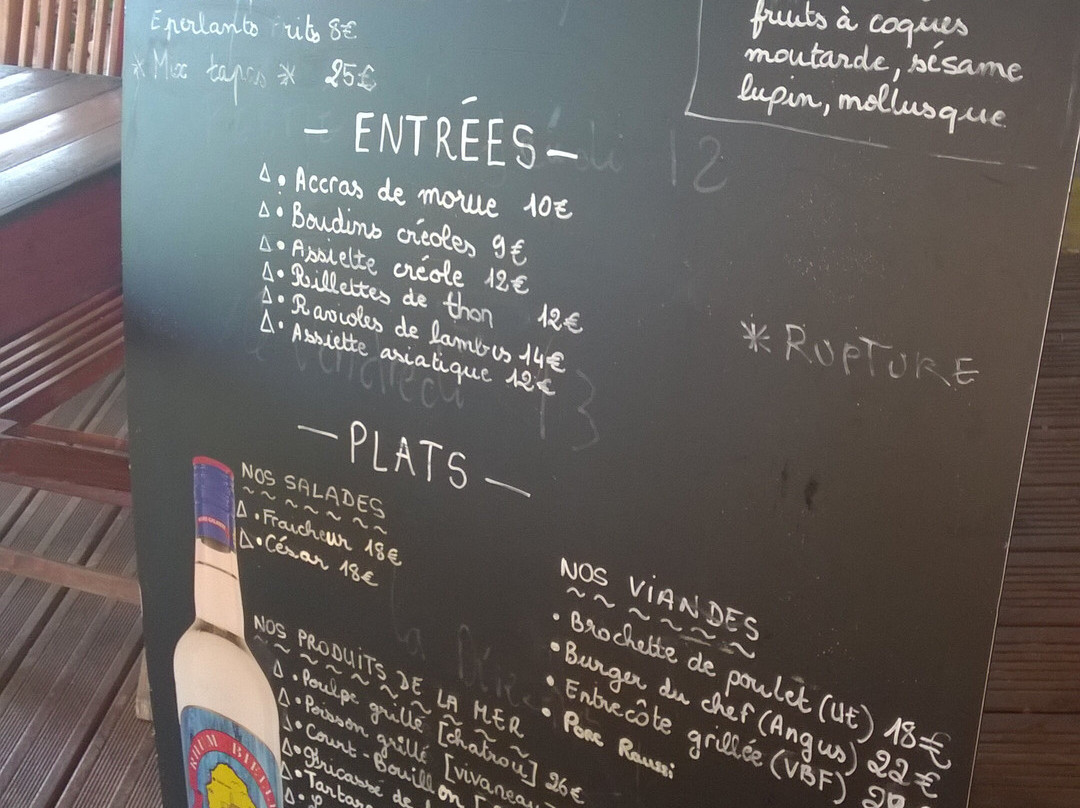 Eperlants frits 8€
* Mix tapas * 25€
fruits à coques
moutarde, sésame
lupin, mollusque
12
- ENTRÉES -
Δ • Accras de morue 10€
Δ • Boudins créoles 9€
Δ • Assiette créole 12€
Δ • Rillettes de thon 12€
Δ • Ravioles de lambis 14€
Δ • Assiette asiatique 12€
* RUPTURE
Vendredi 13
- PLATS -
NOS SALADES
Δ • Fraîcheur 18€
Δ • César 18€
NOS PRODUITS DE LA MER
Δ • Poulpe grillé [chatrou]
Δ • Poisson grillé [vivaneau] 26€
Δ • Court-Bouillon [
Δ • Fricasse de
Δ • Tartare
NOS VIANDES
• Brochette de poulet (UE) 18€
• Burger du chef (Angus) 22€
• Entrecôte grillée (VBF)
• Porc Roussi
RHUM